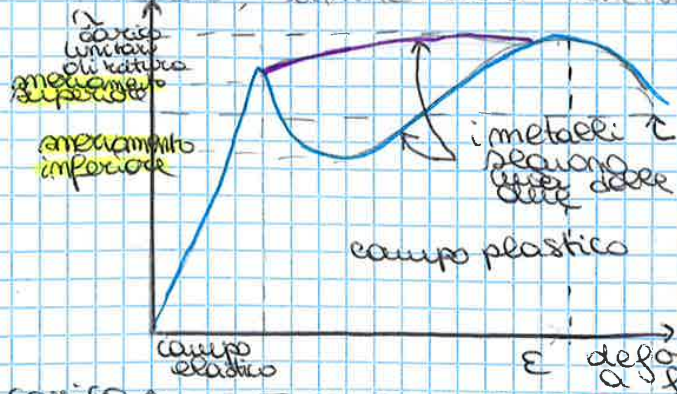 carico
unitario
di rottura
snervamento
superiore
snervamento
inferiore
i metalli
seguono
una delle
due
campo plastico
campo
elastico
ε